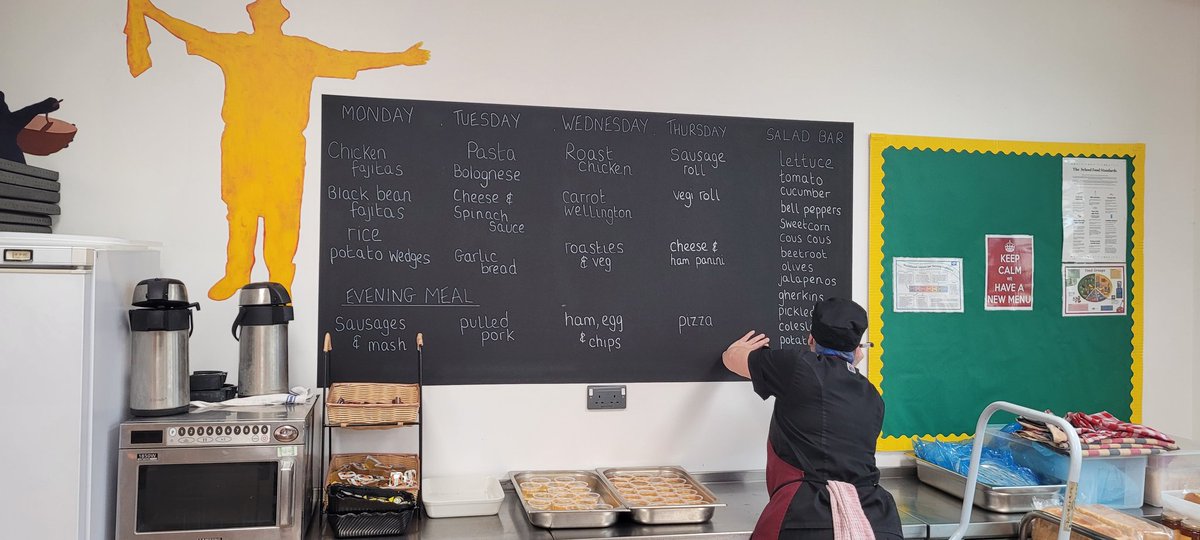 MONDAY
Chicken
fajitas
Black bean
fajitas
rice
potato wedges
TUESDAY
Pasta
Bolognese
Cheese &
Spinach
Sauce
Garlic
bread
WEDNESDAY
Roast
Chicken
carrot
wellington
roasties
& veg
THURSDAY
Sausage
roll
vegi roll
cheese &
ham panini
SALAD BAR
lettuce
tomato
cucumber
bell peppers
sweetcorn
cous cous
beetroot
olives
jalapenos
gherkins
EVENING MEAL
Sausages
& mash
pulled
pork
ham, egg
& chips
pizza
The School Food Standards
KEEP
CALM
HAVE A
NEW MENU